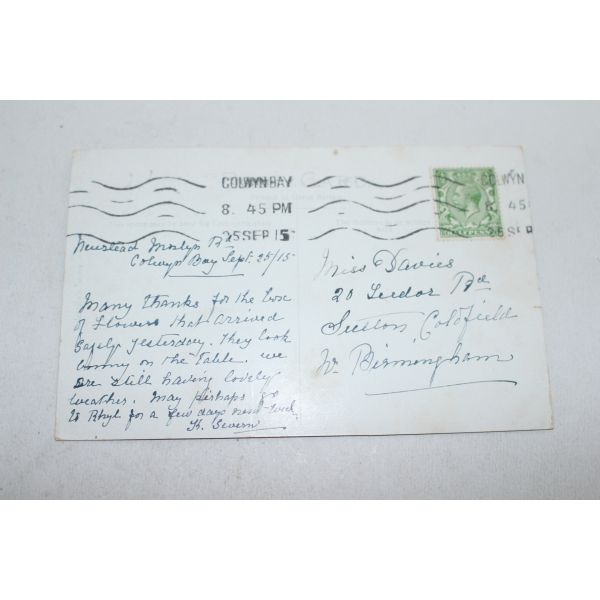 COLWYN BAY
8. 45 PM
25 SEP 15
COLWYN
8. 45
25 SEP
CARD
Newstead Mostyn Rd
Colwyn Bay Sept. 25/15
Many thanks for the box
of flowers that arrived
safely yesterday. They look
on the table. we
are still having lovely
weather. May perhaps go
to Rhyl for a few days next week
K. Severn
Miss Davies
20 Tudor Rd
Sutton Coldfield
Nr Birmingham